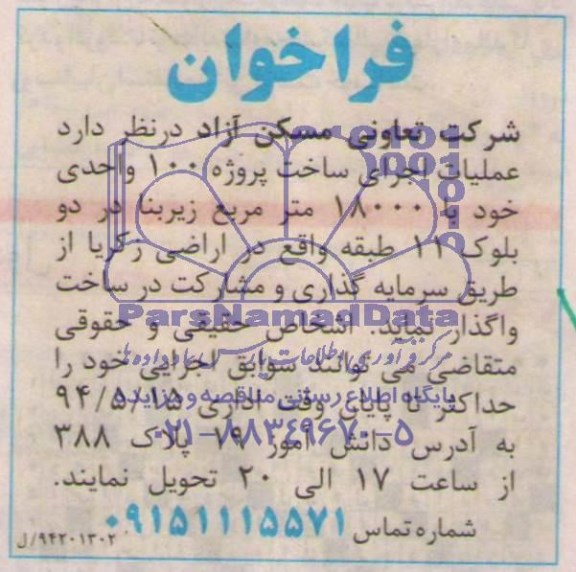 فراخوان
شرکت تعاونی مسکن آزاد درنظر دارد
عملیات اجرای ساخت پروژه ۱۰۰ واحدی
خود با ۱۸۰۰۰ متر مربع زیربنا در دو
بلوک ۱۱ طبقه واقع در اراضی زکریا از
طریق سرمایه گذاری و مشارکت در ساخت
واگذار نماید. اشخاص حقیقی و حقوقی
متقاضی می توانند سوابق اجرایی خود را
حداکثر تا پایان وقت اداری ۹۴/۵/۱۵
به آدرس دانش آموز ۱۹ پلاک ۳۸۸
از ساعت ۱۷ الی ۲۰ تحویل نمایند.
شماره تماس ۰۹۱۵۱۱۱۵۵۷۱
۹۴۲۰۱۳۰۲/ل
ParsNamadData
مرکز فرآوری اطلاعات پارس نماد داده ها
پایگاه اطلاع رسانی مناقصه و مزایده
۰۲۱-۸۸۳۴۹۶۷۰-۵